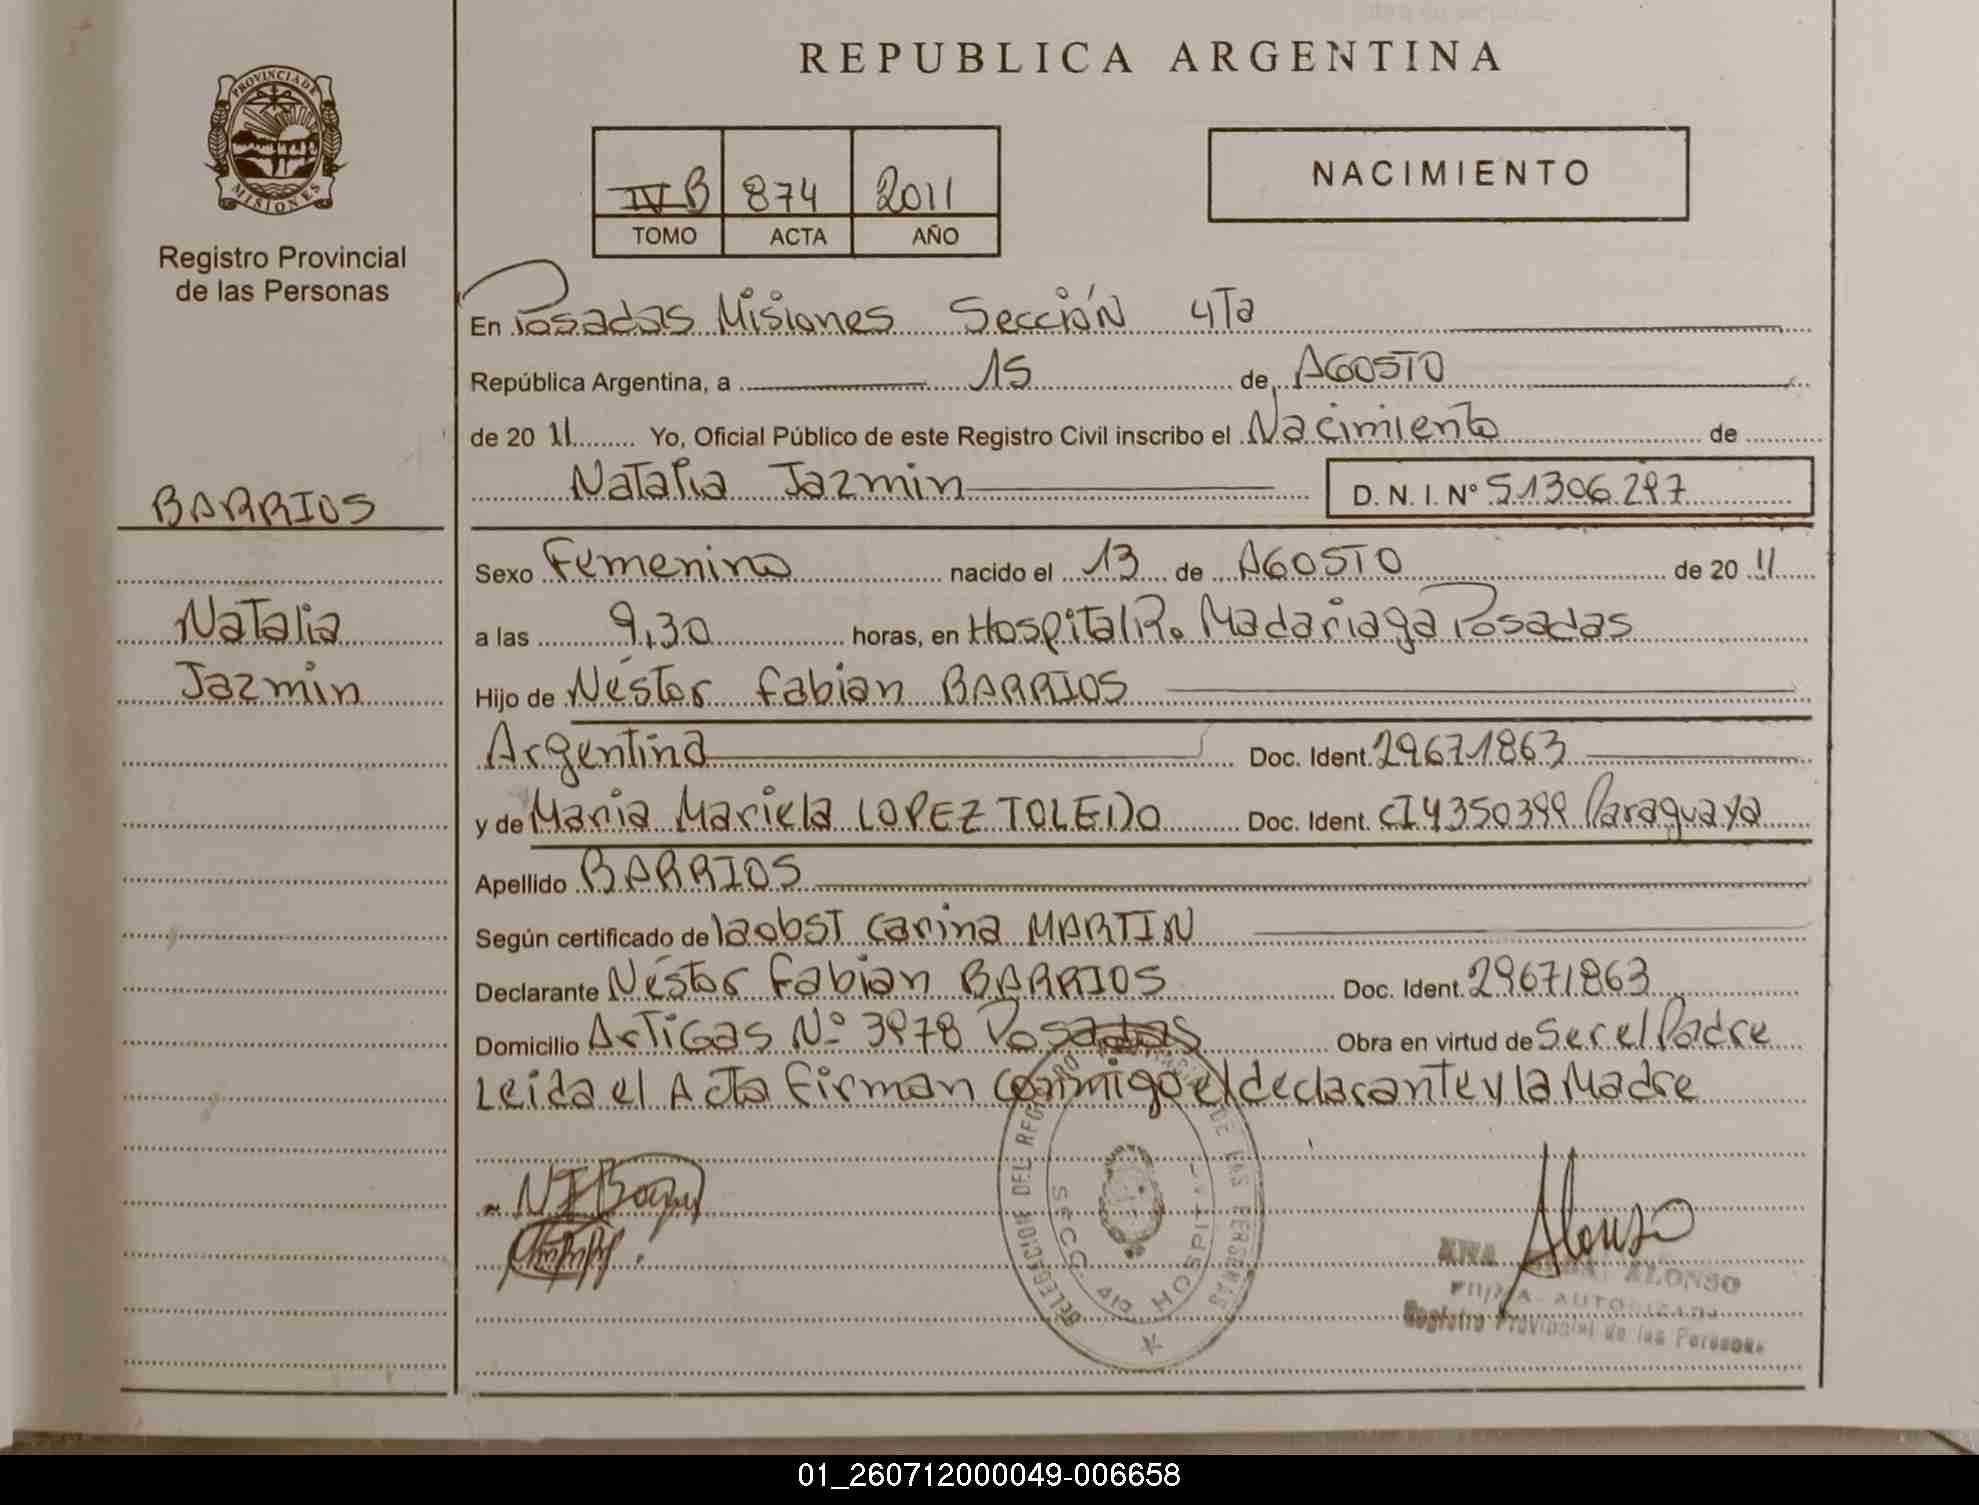 REPUBLICA ARGENTINA
PROVINCIA DE
MISIONES
Registro Provincial
de las Personas
IV B 874 2011
TOMO ACTA AÑO
NACIMIENTO
En Posadas Misiones Sección 4Ta
República Argentina, a 15 de AGOSTO
de 20 11 Yo, Oficial Público de este Registro Civil inscribo el Nacimiento de
Natalia Jazmin D. N. I. Nº 51306297
BARRIOS
Natalia
Jazmin
Sexo Femenino nacido el 13 de AGOSTO de 20 11
a las 9,30 horas, en Hospital R. Madariaga Posadas
Hijo de Néstor Fabian BARRIOS
Argentina Doc. Ident. 29671863
y de Maria Mariela LOPEZ TOLEDO Doc. Ident. CI 4350399 Paraguaya
Apellido BARRIOS
Según certificado de la obst Carina MARTIN
Declarante Néstor Fabian BARRIOS Doc. Ident. 29671863
Domicilio Artigas Nº 3978 Posadas Obra en virtud de Ser el Padre
Leida el Acta Firman conmigo el declarante y la Madre
DELEGACION DEL REGISTRO PROVINCIAL DE LAS PERSONAS
SECC. 4ta HOSPITAL
Alonso
ALONSO
AUTORIZADA
Registro Provincial de las Personas
01_260712000049-006658